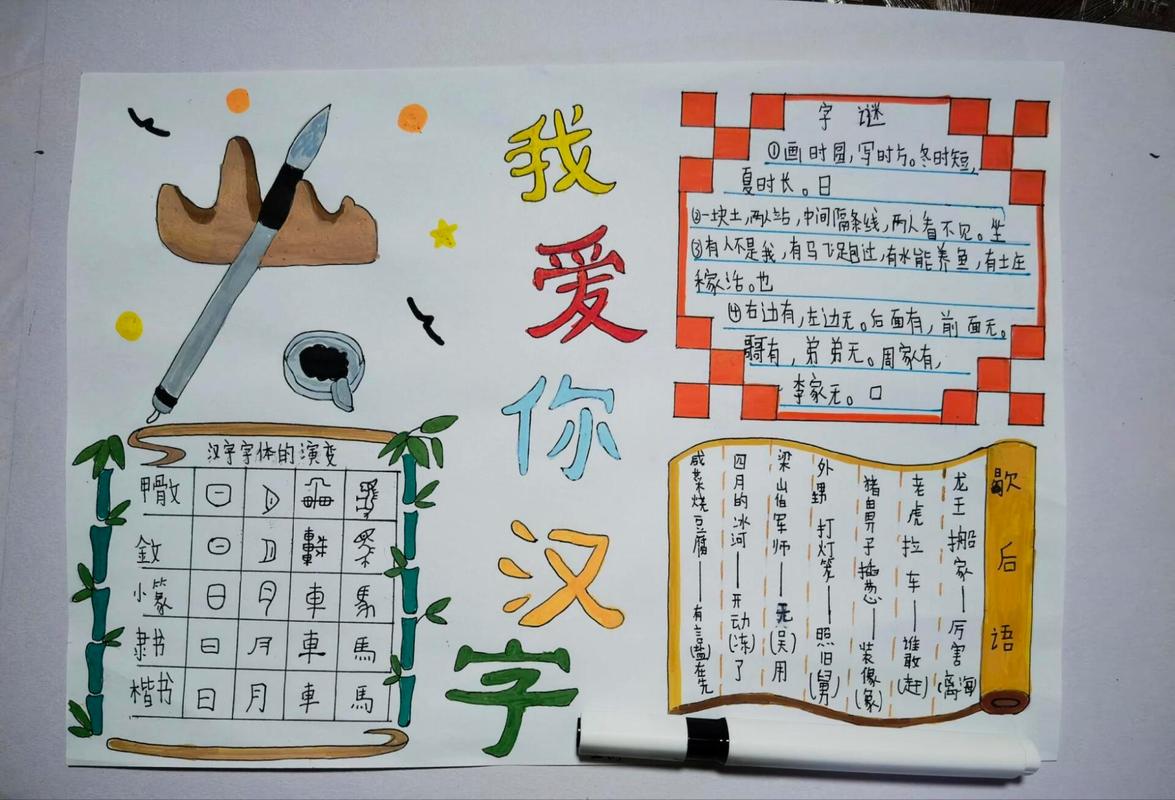 我爱你汉字
字谜
①画时圆,写时方。冬时短,
夏时长。日
②一块土,两人站,中间隔条线,两人看不见。坐
③有人不是我,有马飞跑过,有水能养鱼,有土庄
稼活。也
④右边有,左边无。后面有,前面无。
哥哥有,弟弟无。周家有,
李家无。口
汉字字体的演变
甲骨文
金文
小篆 日 月 車 馬
隶书 日 月 車 馬
楷书 日 月 車 馬
歇后语
龙王搬家——厉害(离海)
老虎拉车——谁敢(赶)
猪鼻子插葱——装像(象)
外甥打灯笼——照旧(舅)
梁山伯军师——无(吴)用
四月的冰河——开动(冻)了
咸菜烧豆腐——有言(盐)在先